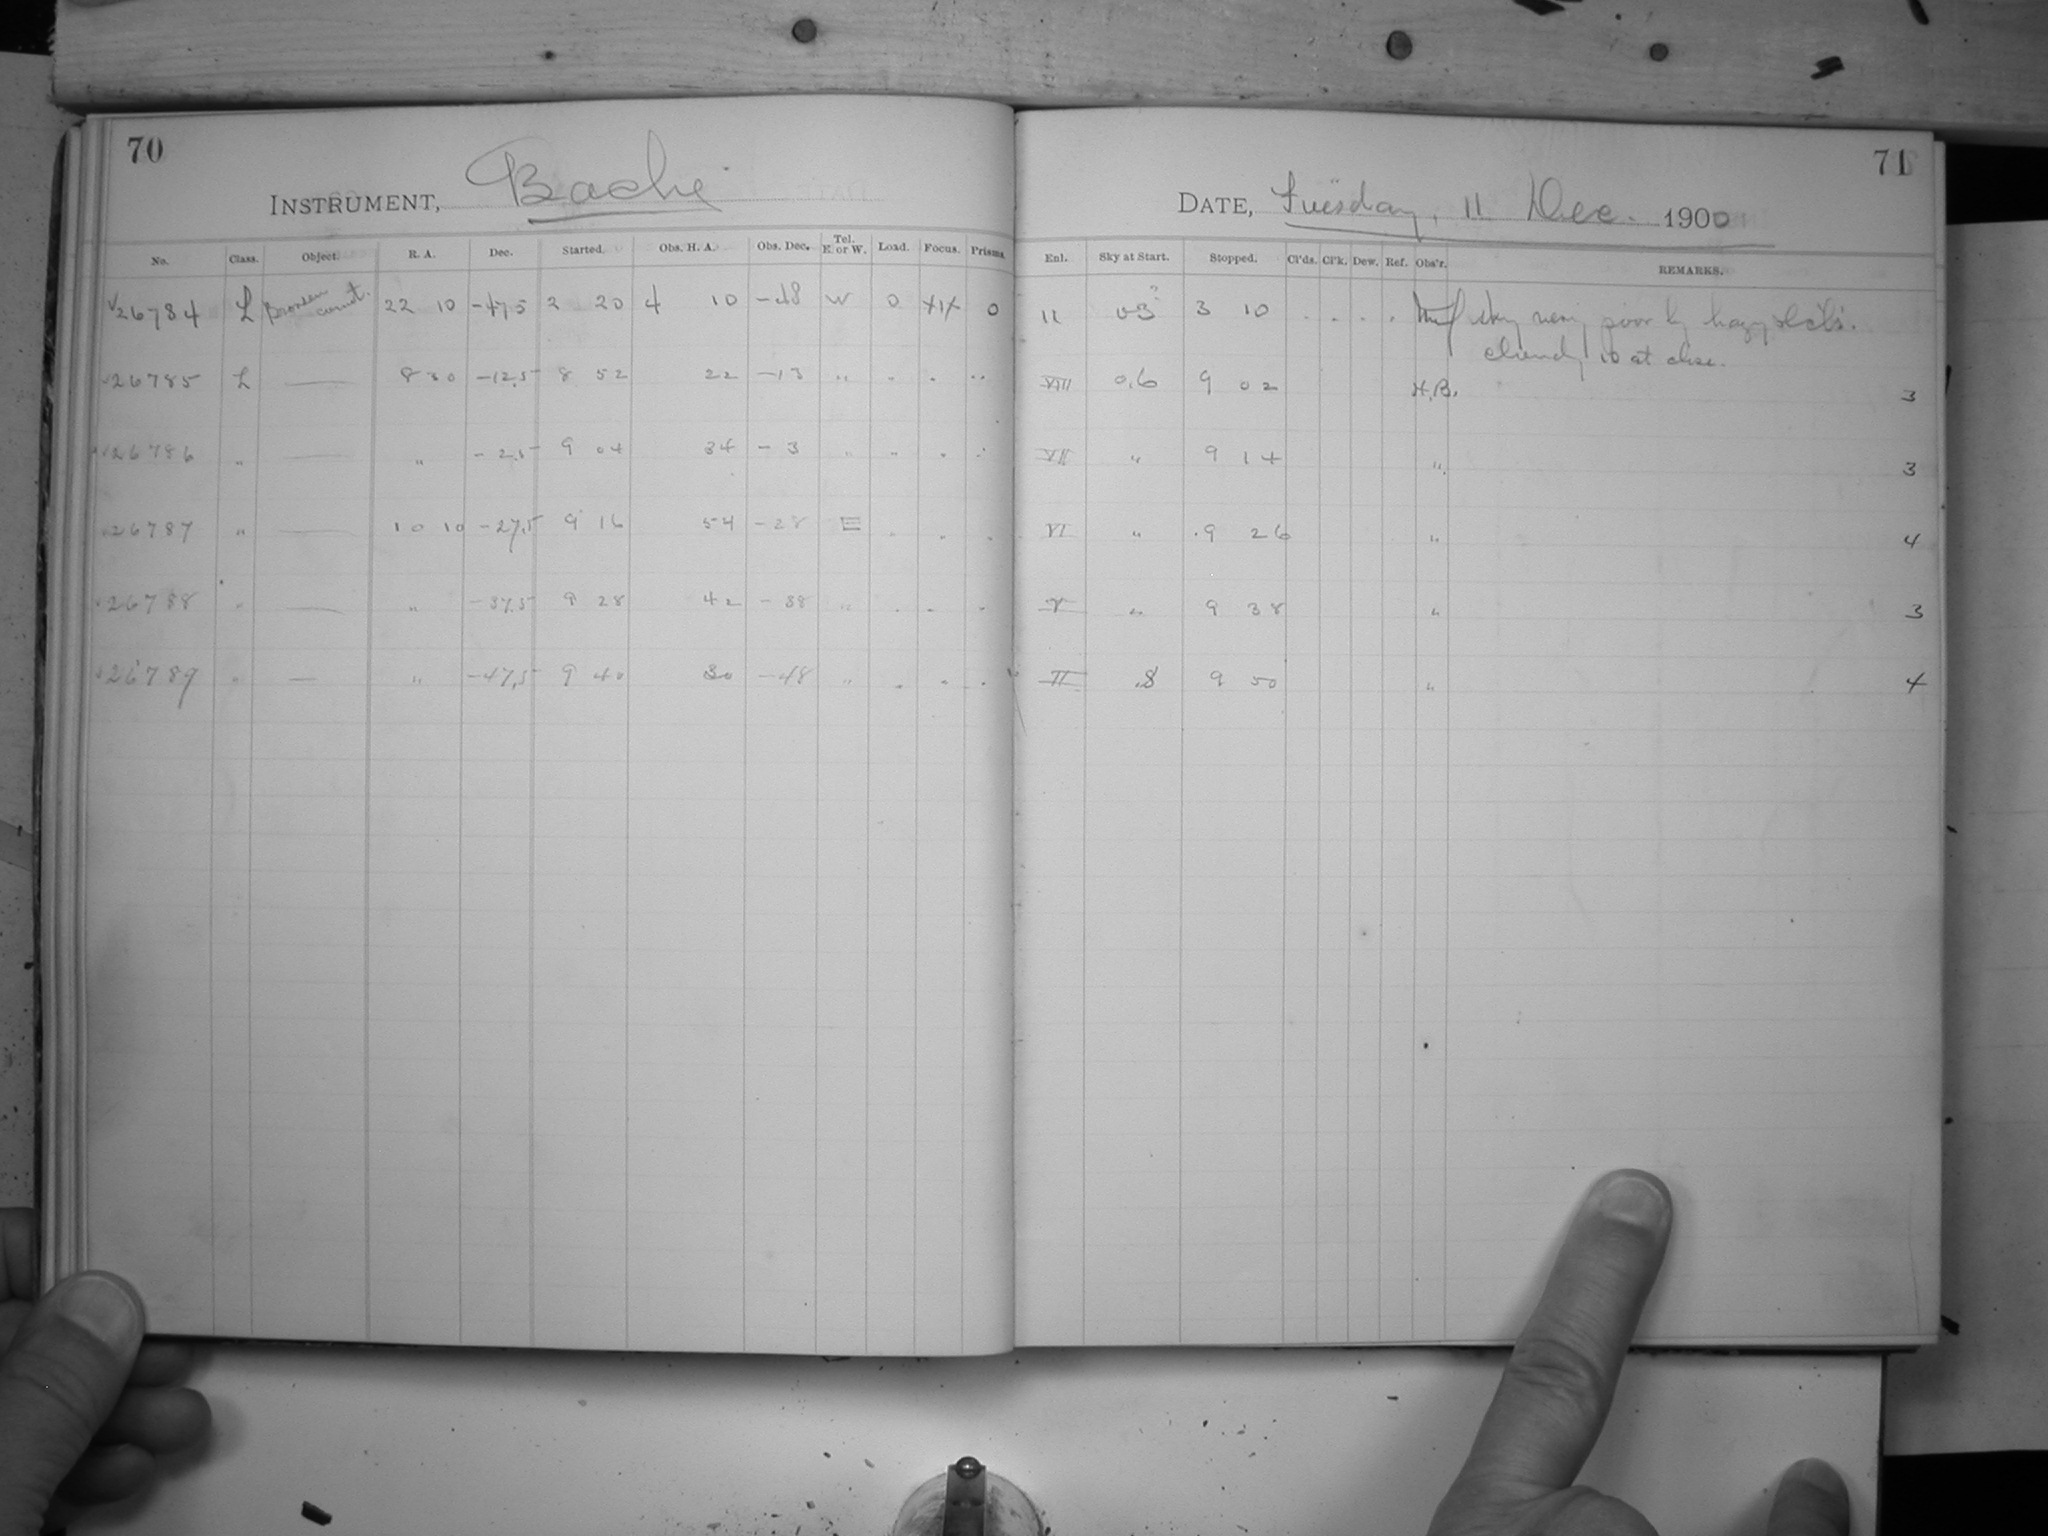 70
INSTRUMENT, Bache
No. Class. Object. R. A. Dec. Started. Obs. H. A. Obs. Dec. Tel. E. or W. Load. Focus. Prisms.
26784 L 22 10 -47,5 2 20 4 10 -48 W 0 0
26785 L — 8 30 -12,5 8 52 22 -13 " " " "
26786 " — " -2,5 9 04 34 -3 " " " "
26787 " — 10 10 -27,5 9 16 54 -28 E " " "
26788 " — " -37,5 9 28 42 -38 " " " "
26789 " — " -47,5 9 40 30 -48 " " " "
71
DATE, Tuesday, 11 Dec. 1900
Enl. Sky at Start. Stopped. Cl'ds. Cl'k. Dew. Ref. Obs'r. REMARKS.
11 3 10 . . . . sky very poor hazy
cloudy 10 at close.
VIII 0.6 9 02 H.B. 3
VII " 9 14 " 3
VI " 9 26 " 4
V " 9 38 " 3
II .8 9 50 " 4